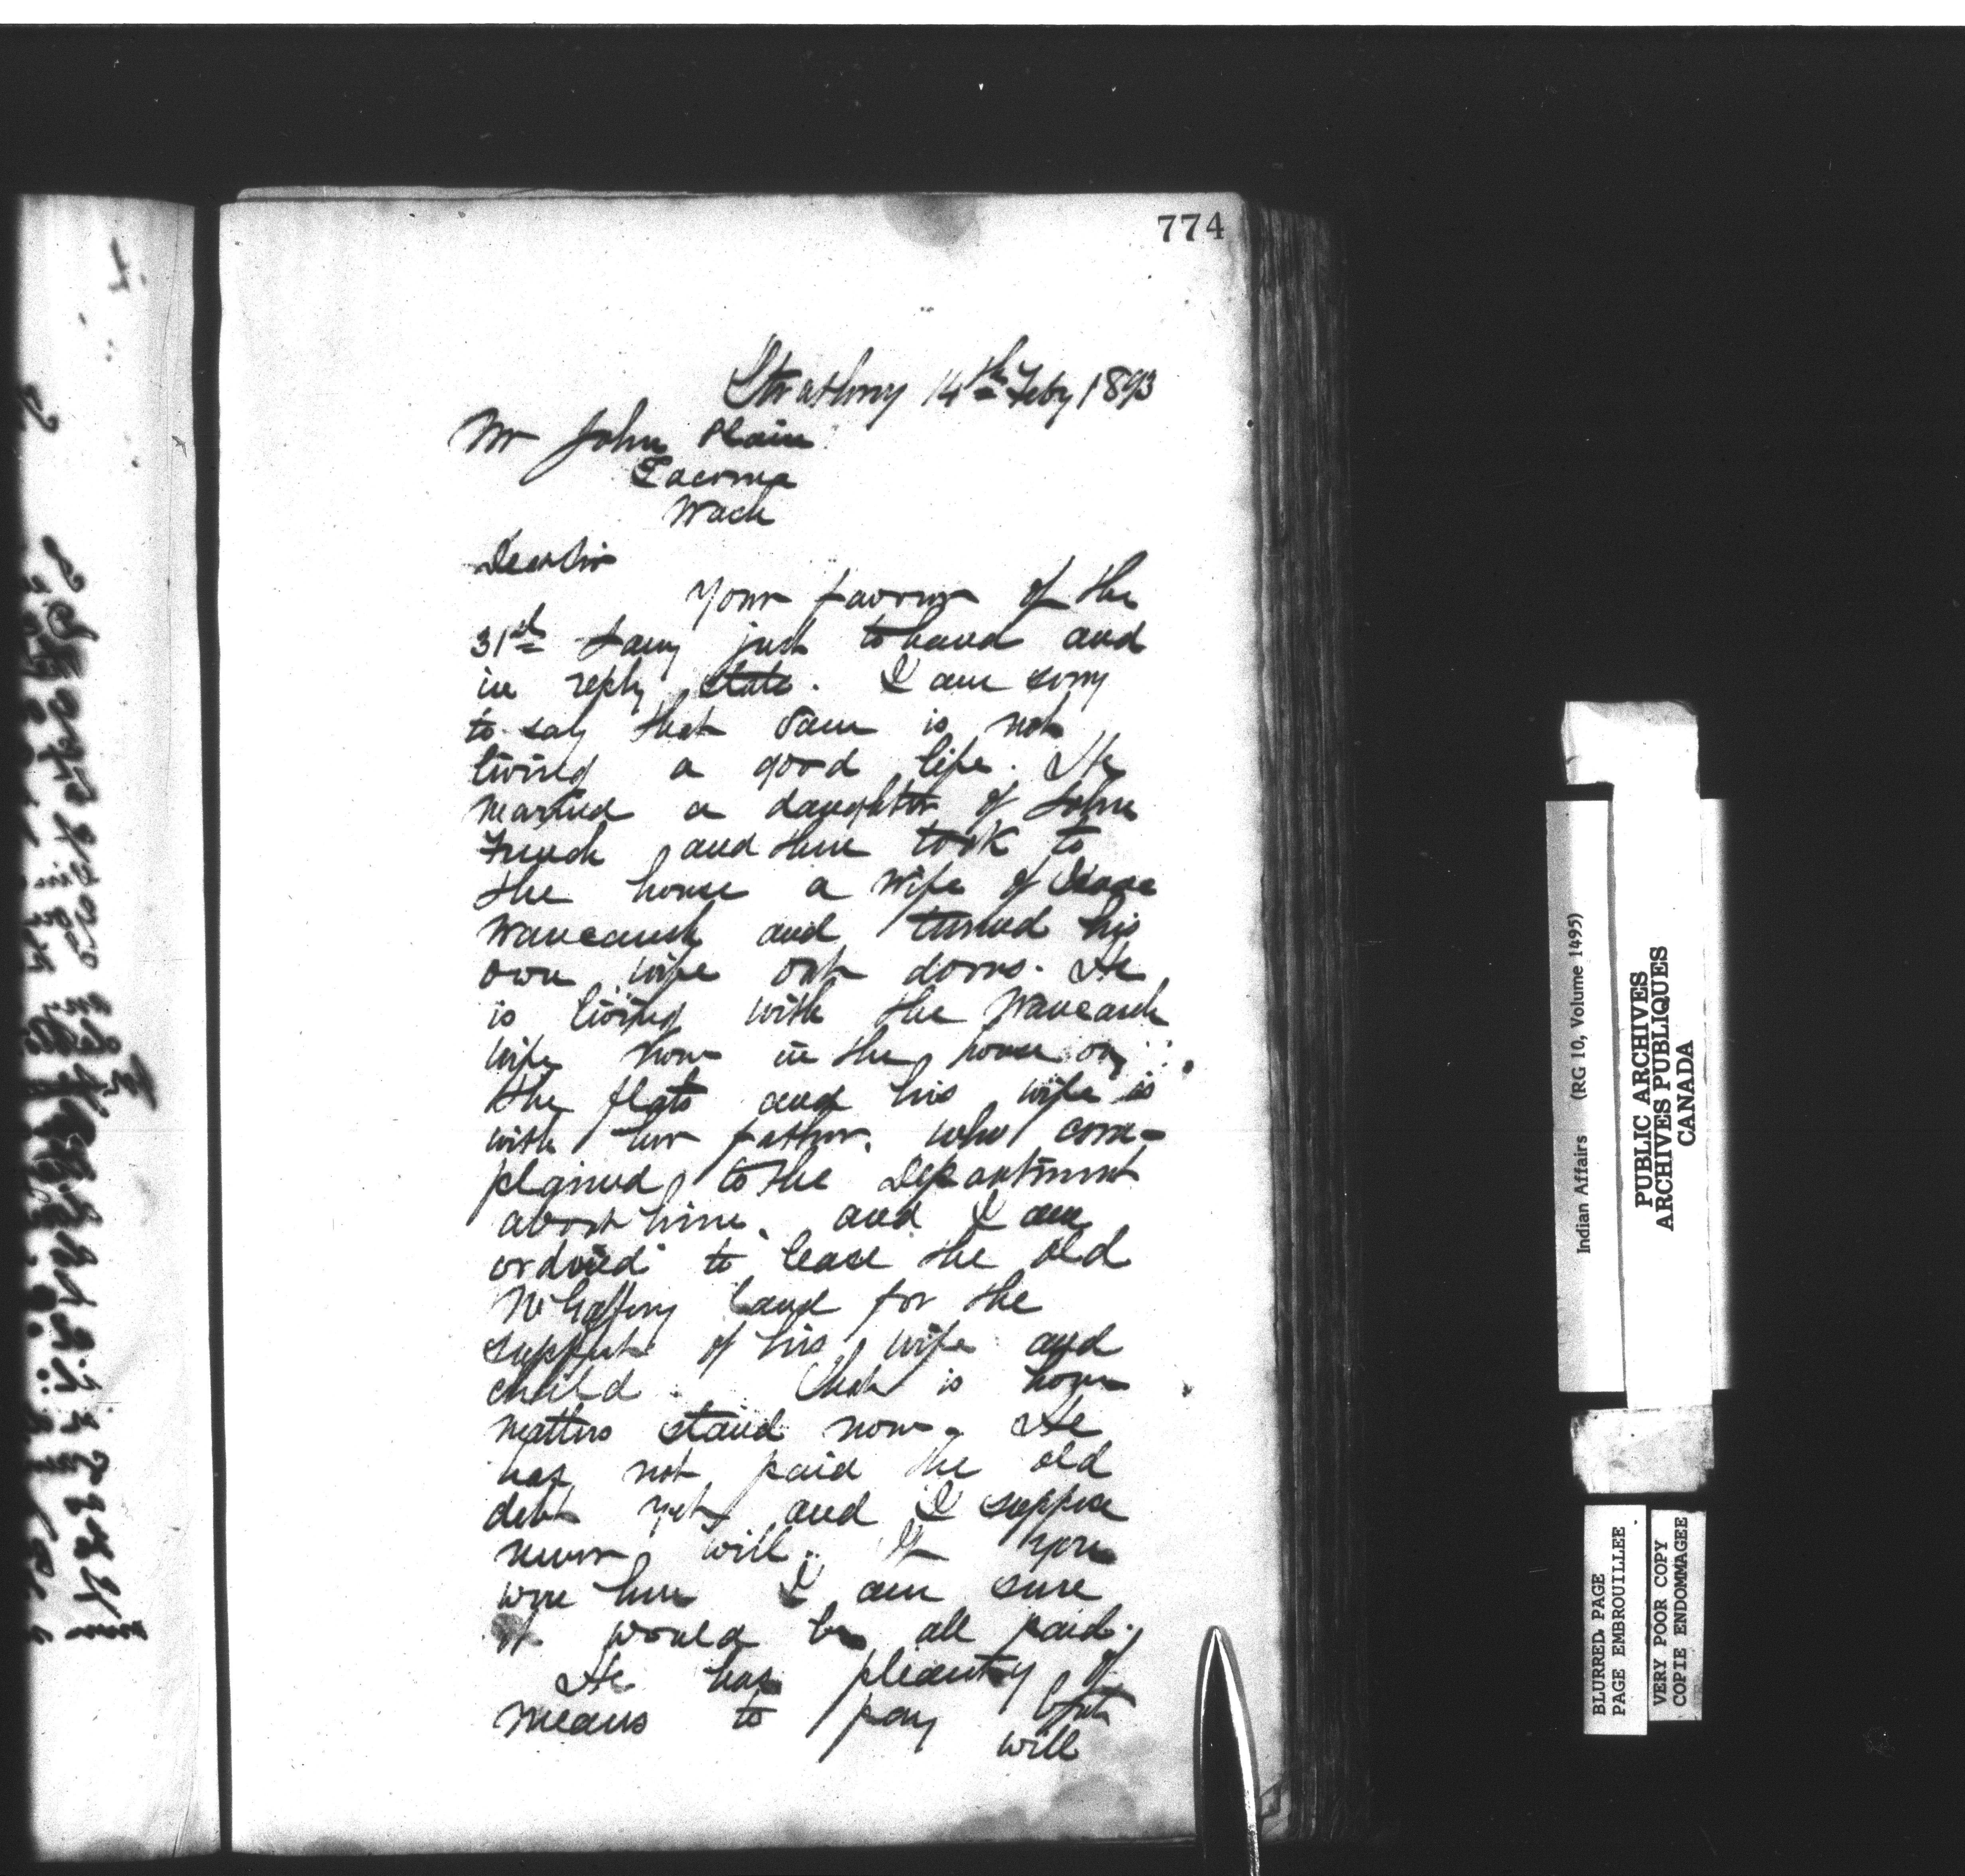 774
Strathroy 14th Feby 1893
Mr John Plain
Tacoma
Wash
Dear Sir
Your favour of the
31st Jany just to hand and
in reply state. I am sorry
to say that Sam is not
living a good life. He
married a daughter of John
French and then took to
the house a wife of Isaac
Waucaush and turned his
own wife out doors. He
is living with the Waucaush
wife now in the house on
the flats and his wife is
with her father. who com-
plained to the Department
about him. and I am
ordered to lease the old
land for the
support of his wife and
child. that is how
matters stand now. He
has not paid the old
debt yet and I suppose
never will. If you
were here I am sure
it would be all paid.
He has pleanty of
means to pay but
will
Indian Affairs (RG 10, Volume 1495)
PUBLIC ARCHIVES
ARCHIVES PUBLIQUES
CANADA
BLURRED PAGE
PAGE EMBROUILLEE
VERY POOR COPY
COPIE ENDOMMAGEE